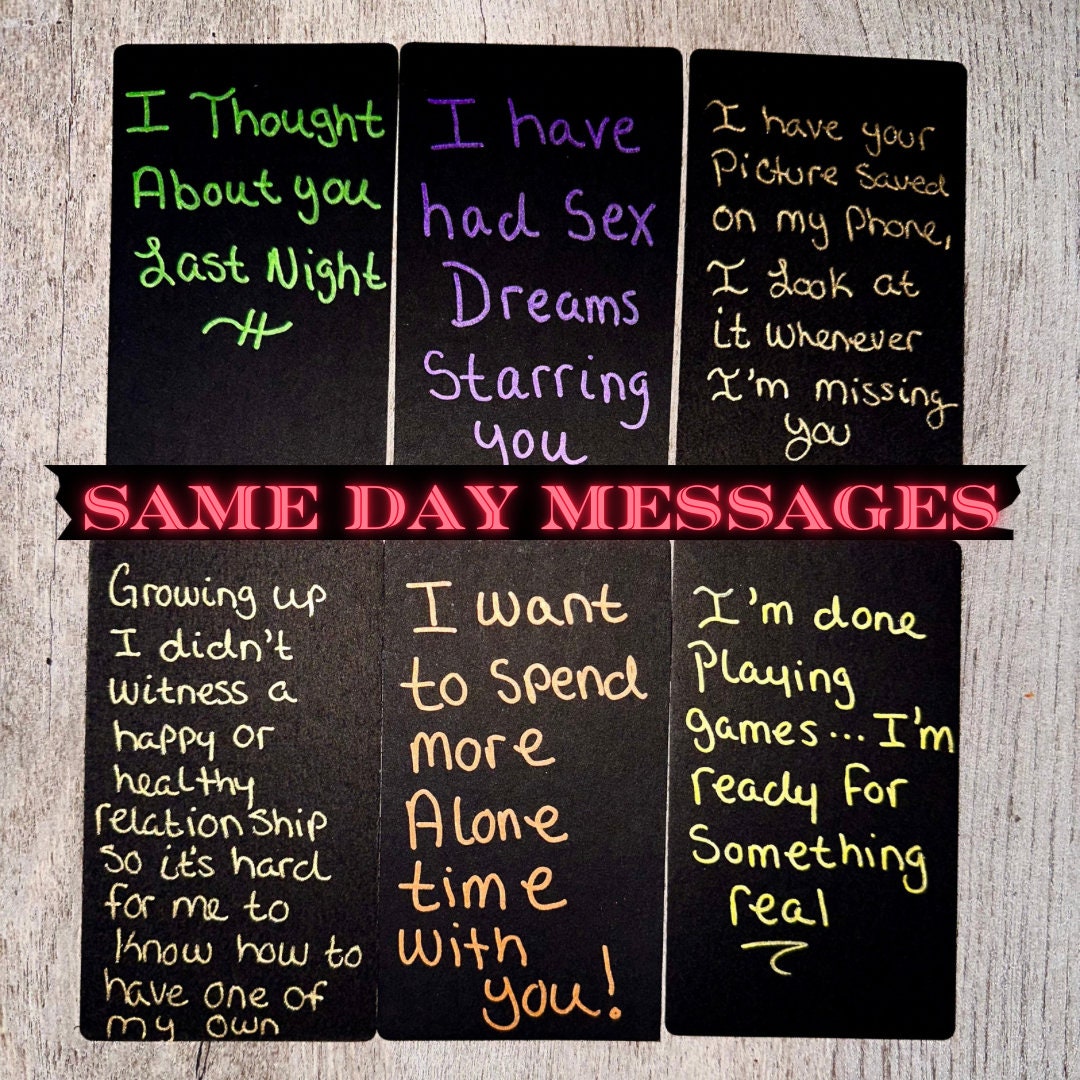 I Thought
About you
Last Night
I have
had Sex
Dreams
Starring
you
I have your
Picture Saved
on my Phone,
I Look at
it whenever
I'm missing
you
SAME DAY MESSAGES
Growing up
I didn't
witness a
happy or
healthy
relationship
So it's hard
for me to
Know how to
have one of
my own
I want
to Spend
more
Alone
time
with
you!
I'm done
Playing
games... I'm
ready For
Something
real